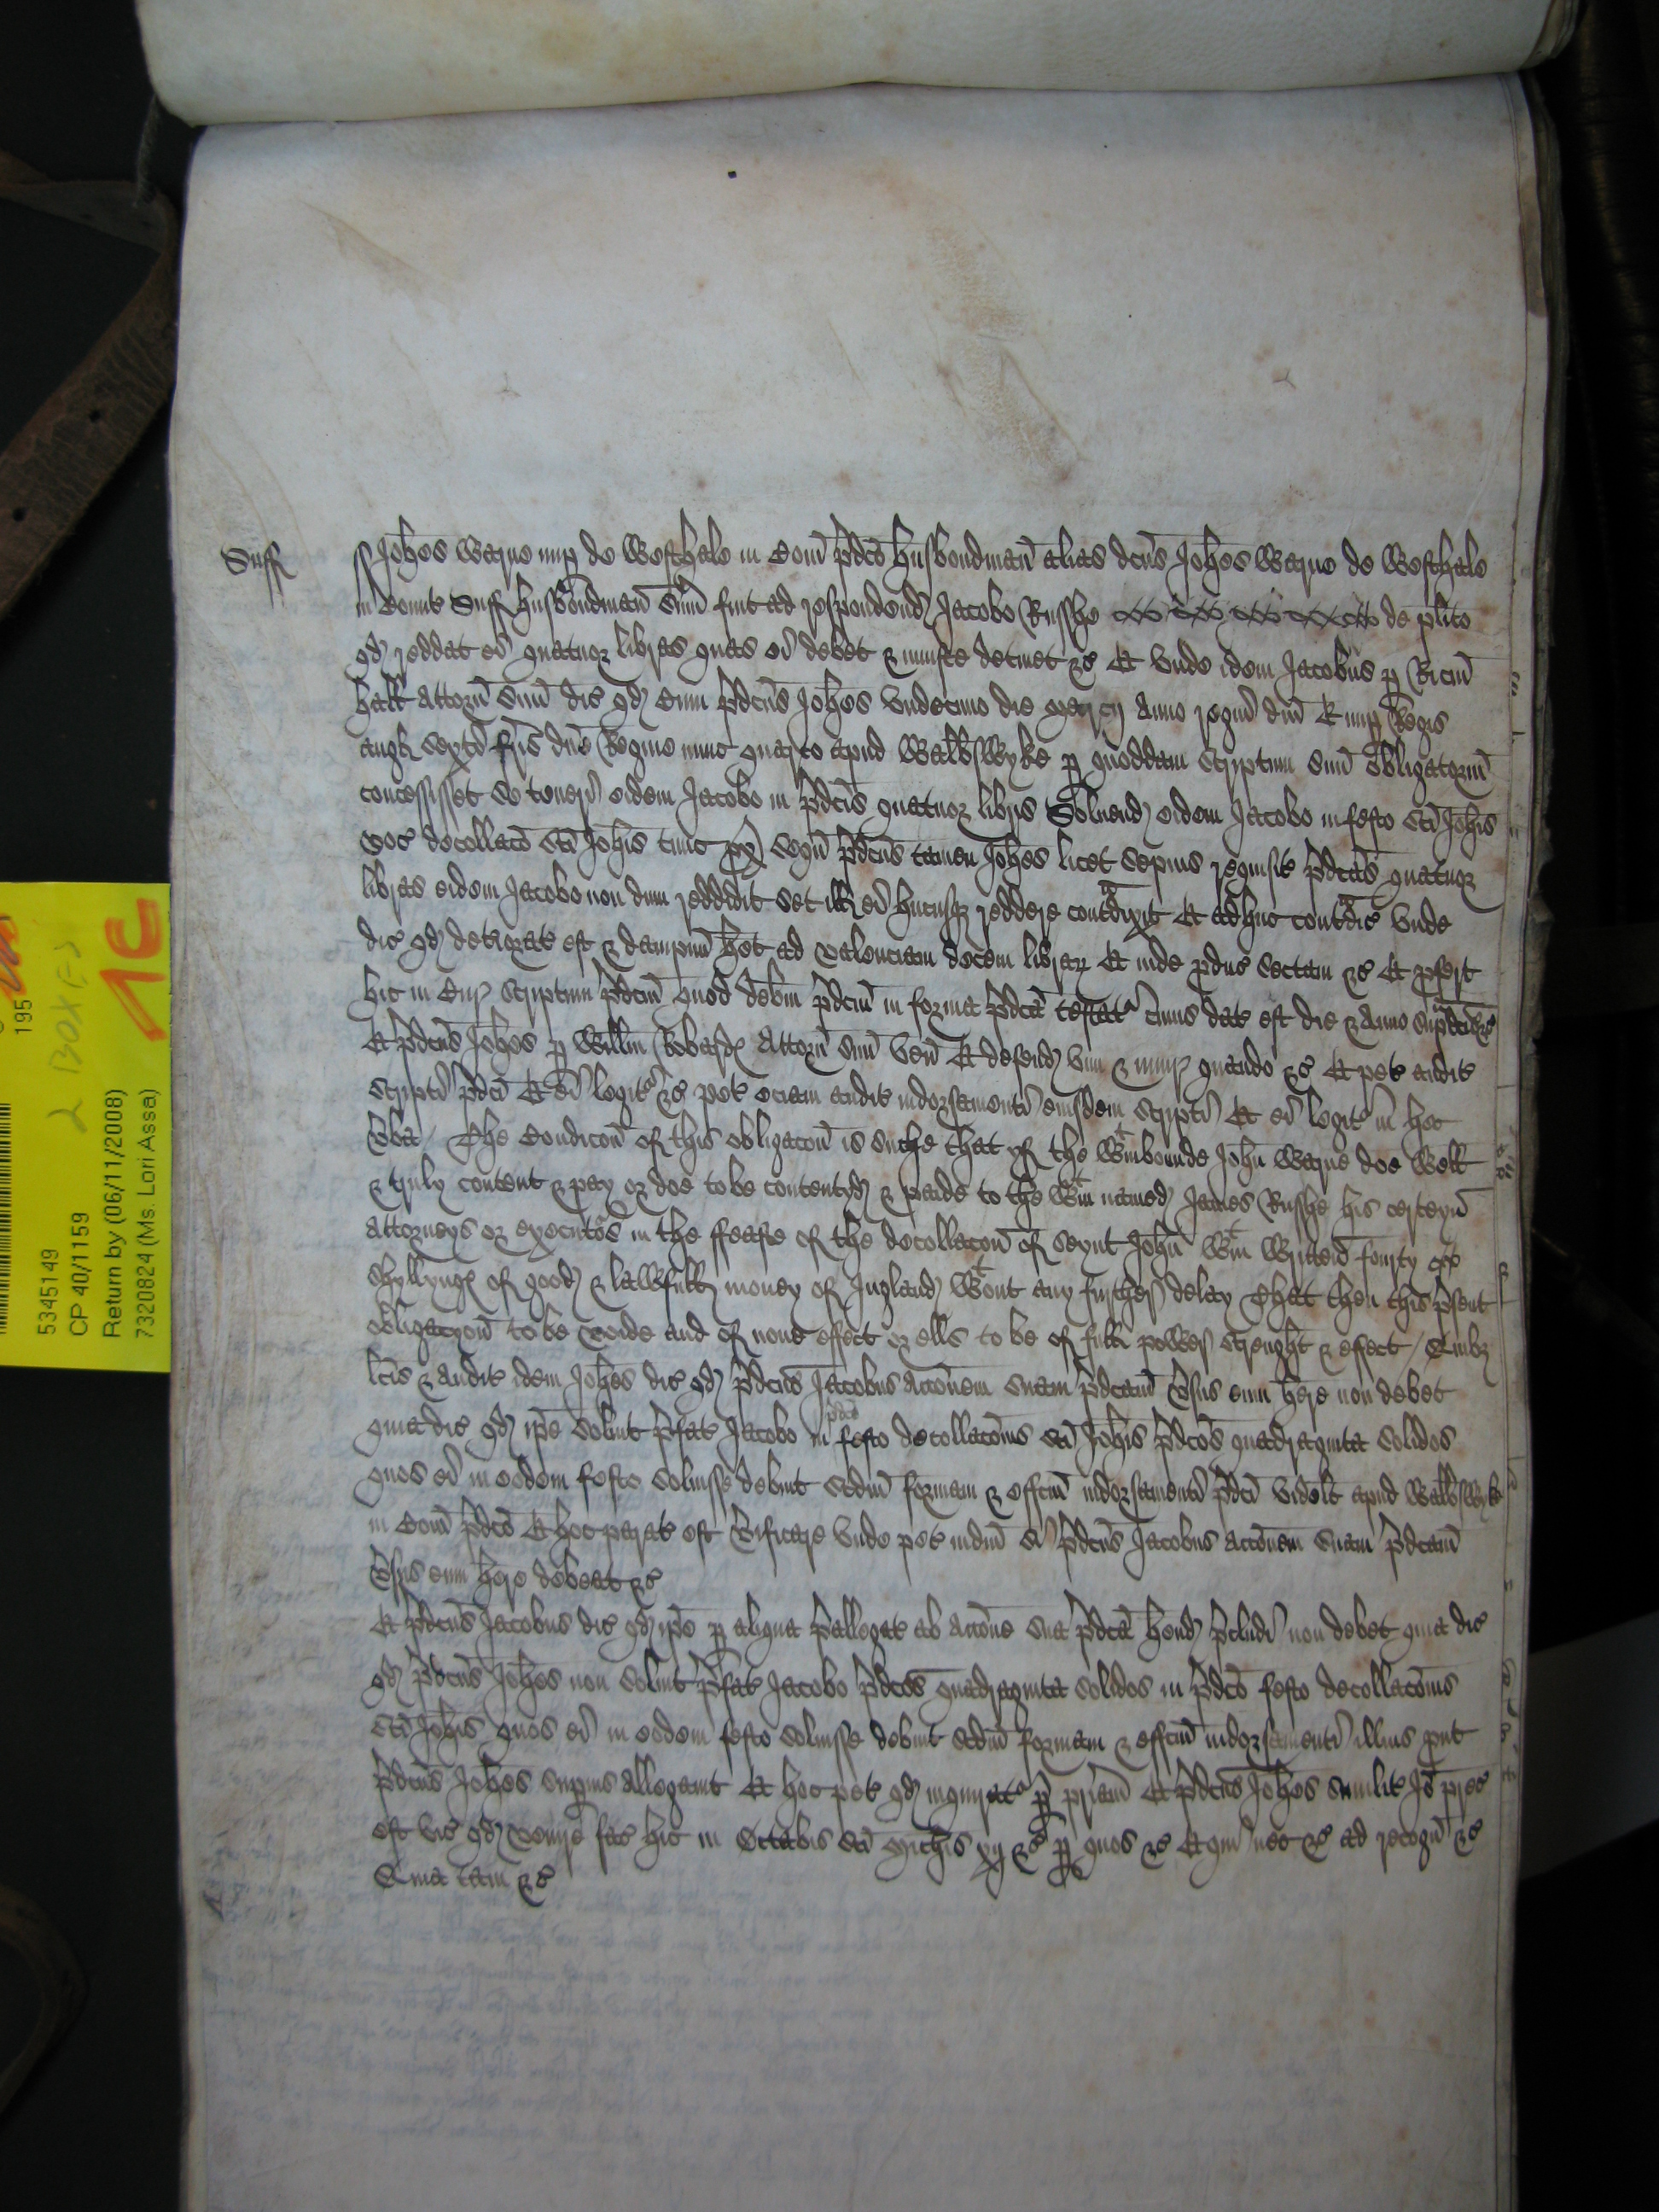 Suff
Joh̃es Wayne nup de Westhale in Com̃ p̃dc̃o husbondman̄ alias dc̃us Joh̃es Wayne de Westhale
in Comit Suff husbondman̄ sum̃ fuit ad respondend Jacobo Russhe de pl̃ito
qd reddat ei quatuor libras quas ei debet & iniuste detinet &c Et unde idem Jacobus p Ric̃m
hall Attorñ suũ dic qd cum p̃dc̃us Joh̃es undecimo die Marcij Anno regni dñi E nup Regis
angl sexti fr̃is dñe Regine nunc quarto apud Walb̃swyke p quoddam scriptum suũ obligatoriũ
concessisset se teneri eidem Jacobo in p̃dc̃is quatuor libris Soluend eidem Jacobo in festo sc̃i Joh̃is
voc decollac̃o sc̃i Joh̃is tunc px̃ sequ p̃dc̃us tamen Joh̃es licet sepius requisit p̃dc̃as quatuor
libras eidem Jacobo non dum reddidit set ill ei hucusq reddere contradixit Et adhuc contradic unde
dic qd deteriorat est & dampnũ h̃et ad valenciam decem librar Et inde p̃duc sectam &c Et p̃fert
hic in Cur scriptum p̃dc̃m quod deb̃m p̃dc̃m in forma p̃dc̃a testat cuius dat est die & Anno sup̃dc̃is &c
Et p̃dc̃us Joh̃es p Will̃m Robards Attorñ suũ veñ Et defend vim & iniur quando &c Et pet audit
scripti p̃dc̃i Et ei legit &c pet eciam audit indorsamenti eiusdem scripti Et ei legit in hec
v̄ba / The Condicoñ of this obligacoñ is suche that yf the wtinbounde John̄ Wayne doe well
& truly content & pay or doe to be contentyd & paide to the wtin named James Russhe his certeyñ
attorneys or executõs in the ffeaste of the decollacoñ of seynt John̄ wtin wrytteñ fourty
shyllyngs of good & lawfull money of Ingland wtout any further delay That then this p̃sent
obligacyoñ to be voide and of none effect or ells to be of full power strenght & effect / Quib̃z
l̃cis & audit idem Joh̃es dic qd p̃dc̃us Jacobus acc̃onem suam p̃dc̃am v̄sus eum h̃ere non debet
quia dic qd ip̃e soluit p̃fat Jacobo in p̃dc̃o festo decollac̃onis sc̃i Joh̃is p̃dc̃os quadraginta solidos
quos ei in eodem festo soluisse debuit sc̃dm formam & effc̃m indorsamenti p̃dc̃i videlt apud Walb̃swyk
in Com̃ p̃dc̃o Et hoc parat est v̄ificare unde pet iudm̃ si p̃dc̃us Jacobus acc̃onem suam p̃dc̃am
v̄sus eum h̃ere debeat &c
Et p̃dc̃us Jacobus dic qd ip̃e p aliqua p̃allegat ab acc̃one sua p̃dc̃a h̃end p̃cludi non debet quia dic
qd p̃dc̃us Joh̃es non soluit p̃fat Jacobo p̃dc̃os quadraginta solidos in p̃dc̃o festo decollac̃onis
sc̃i Joh̃is quos ei in eodem festo soluisse debuit sc̃dm formam & effc̃m indorsamenti illius put
p̃dc̃us Joh̃es supius allegauit Et hoc pet qd inquirat p pr̃iam Et p̃dc̃us Joh̃es similit Iõ prec
est vic qd venire fac hic in Octabis sc̃i Mich̃is xij &c p quos &c Et qui nec &c ad recogñ &c
Quia tam &c
195
2 Box (-)
1C
5345149
CP 40/1159
Return by (06/11/2008)
7320824 (Ms. Lori Assa)